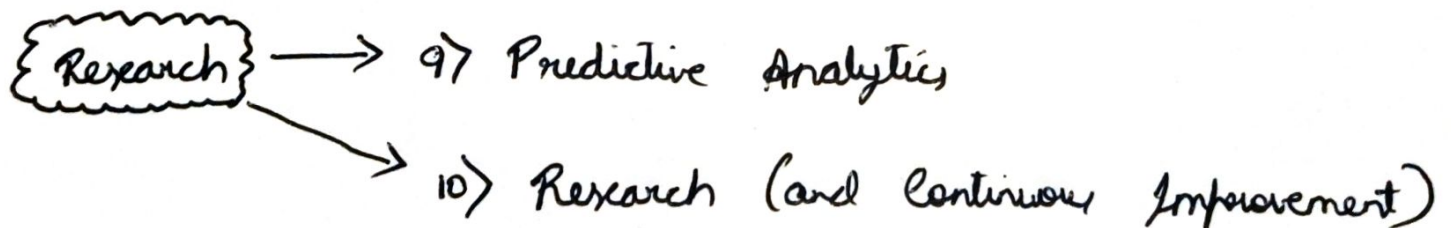 Research → 9> Predictive Analytics
10> Research (and Continuous Improvement)